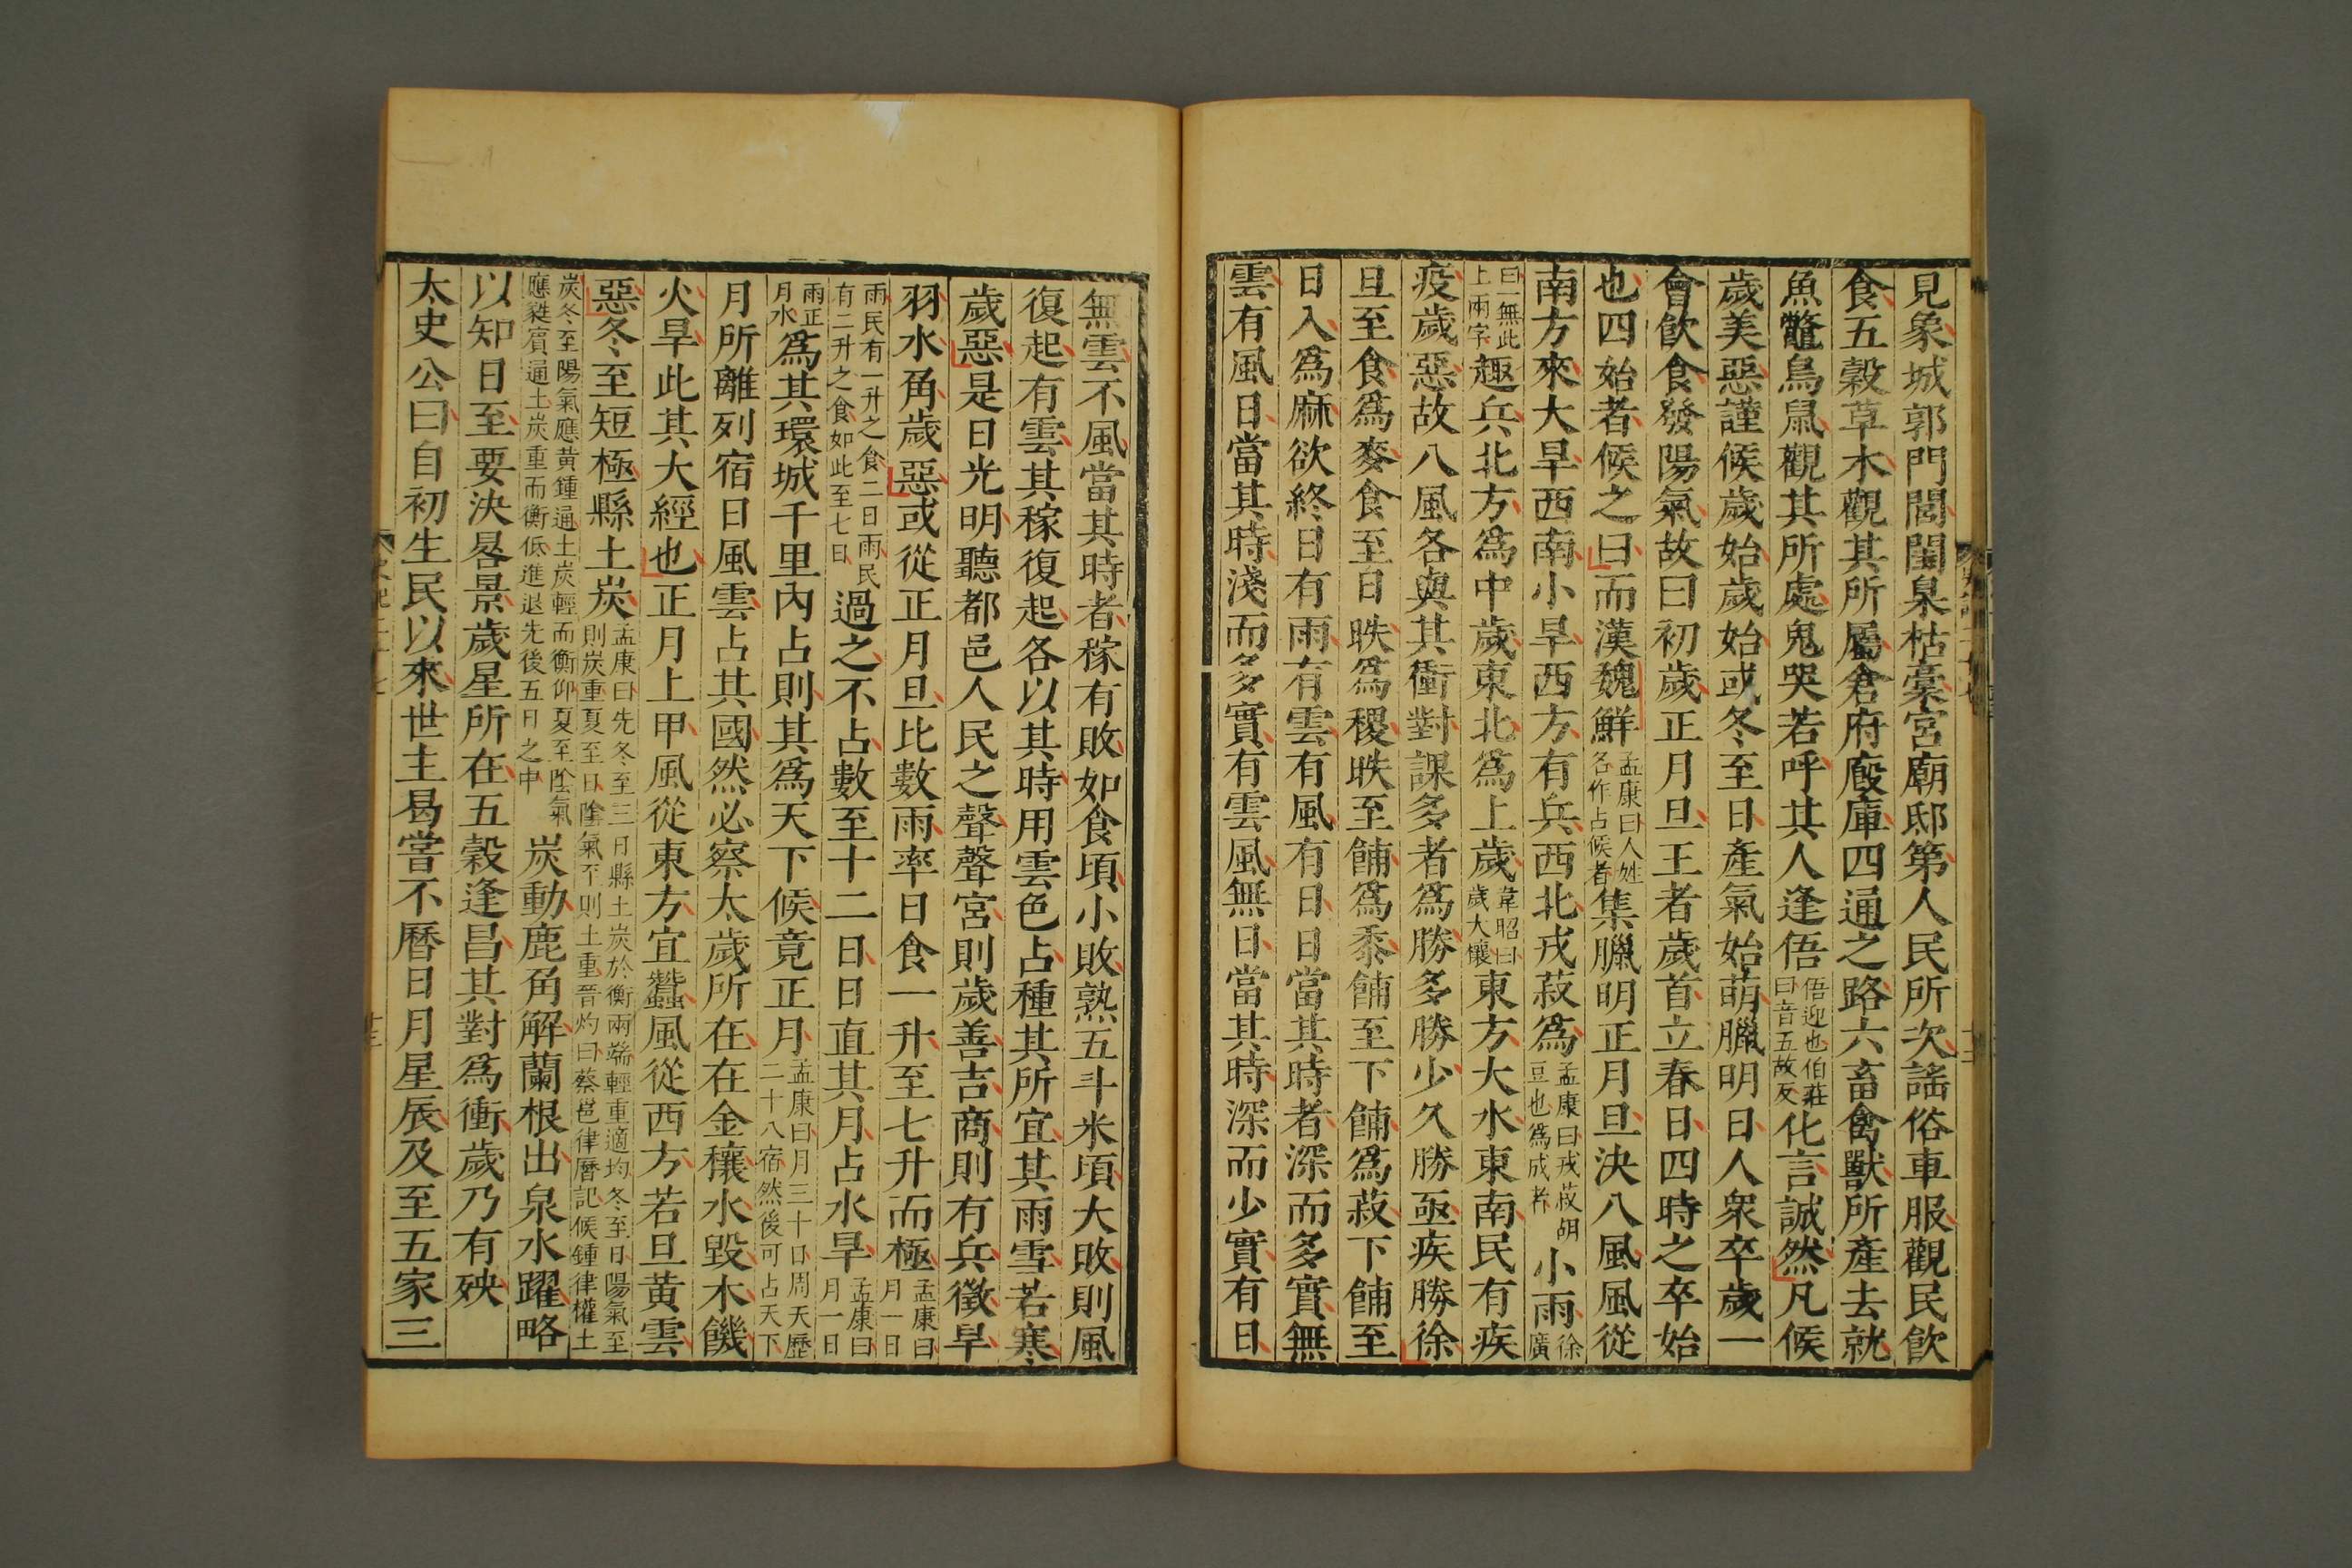 見象城郭門閭閨枲枯槀宮廟邸第人民所次謠俗車服觀民飲
食五穀草木觀其所屬倉府廄庫四通之路六畜禽獸所產去就
魚鼈鳥鼠觀其所處鬼哭若呼其人逢俉俉迎也伯莊曰音五故反化言誠然凡候
歲美惡謹候歲始歲始或冬至日產氣始萌臘明日人衆卒歲一
會飲食發陽氣故曰初歲正月旦王者歲首立春日四時之卒始
也四始者候之日而漢魏鮮孟康曰人姓名作占候者集臘明正月旦決八風風從
南方來大旱西南小旱西方有兵西北戎菽爲孟康曰戎菽胡豆也爲成者小雨徐廣
曰一無此上兩字趣兵北方爲中歲東北爲上歲韋昭曰歲大穰東方大水東南民有疾
疫歲惡故八風各與其衝對課多者爲勝多勝少久勝亟疾勝徐
旦至食爲麥食至日昳爲稷昳至餔爲黍餔至下餔爲菽下餔至
日入爲麻欲終日有雨有雲有風有日日當其時者深而多實無
雲有風日當其時淺而多實有雲風無日當其時深而少實有日
無雲不風當其時者稼有敗如食頃小敗熟五斗米頃大敗則風
復起有雲其稼復起各以其時用雲色占種其所宜其雨雪若寒
歲惡是日光明聽都邑人民之聲聲宮則歲善吉商則有兵徵旱
羽水角歲惡或從正月旦比數雨率日食一升至七升而極孟康曰月一日
雨民有一升之食二日雨民有二升之食如此至七日過之不占數至十二日日直其月占水旱孟康曰月一日
雨正月水爲其環城千里內占則其爲天下候竟正月孟康曰月三十日周天歷二十八宿然後可占天下
月所離列宿日風雲占其國然必察太歲所在在金穰水毀木饑
火旱此其大經也正月上甲風從東方宜蠶風從西方若旦黃雲
惡冬至短極縣土炭孟康曰先冬至三日縣土炭於衡兩端輕重適均冬至日陽氣至則炭重夏至日陰氣至則土重晉灼曰蔡邕律曆記候鍾律權土
炭冬至陽氣應黃鍾通土炭輕而衡仰夏至陰氣應蕤賓通土炭重而衡低進退先後五日之中炭動鹿角解蘭根出泉水躍略
以知日至要決晷景歲星所在五穀逢昌其對爲衝歲乃有殃
太史公曰自初生民以來世主曷嘗不曆日月星辰及至五家三